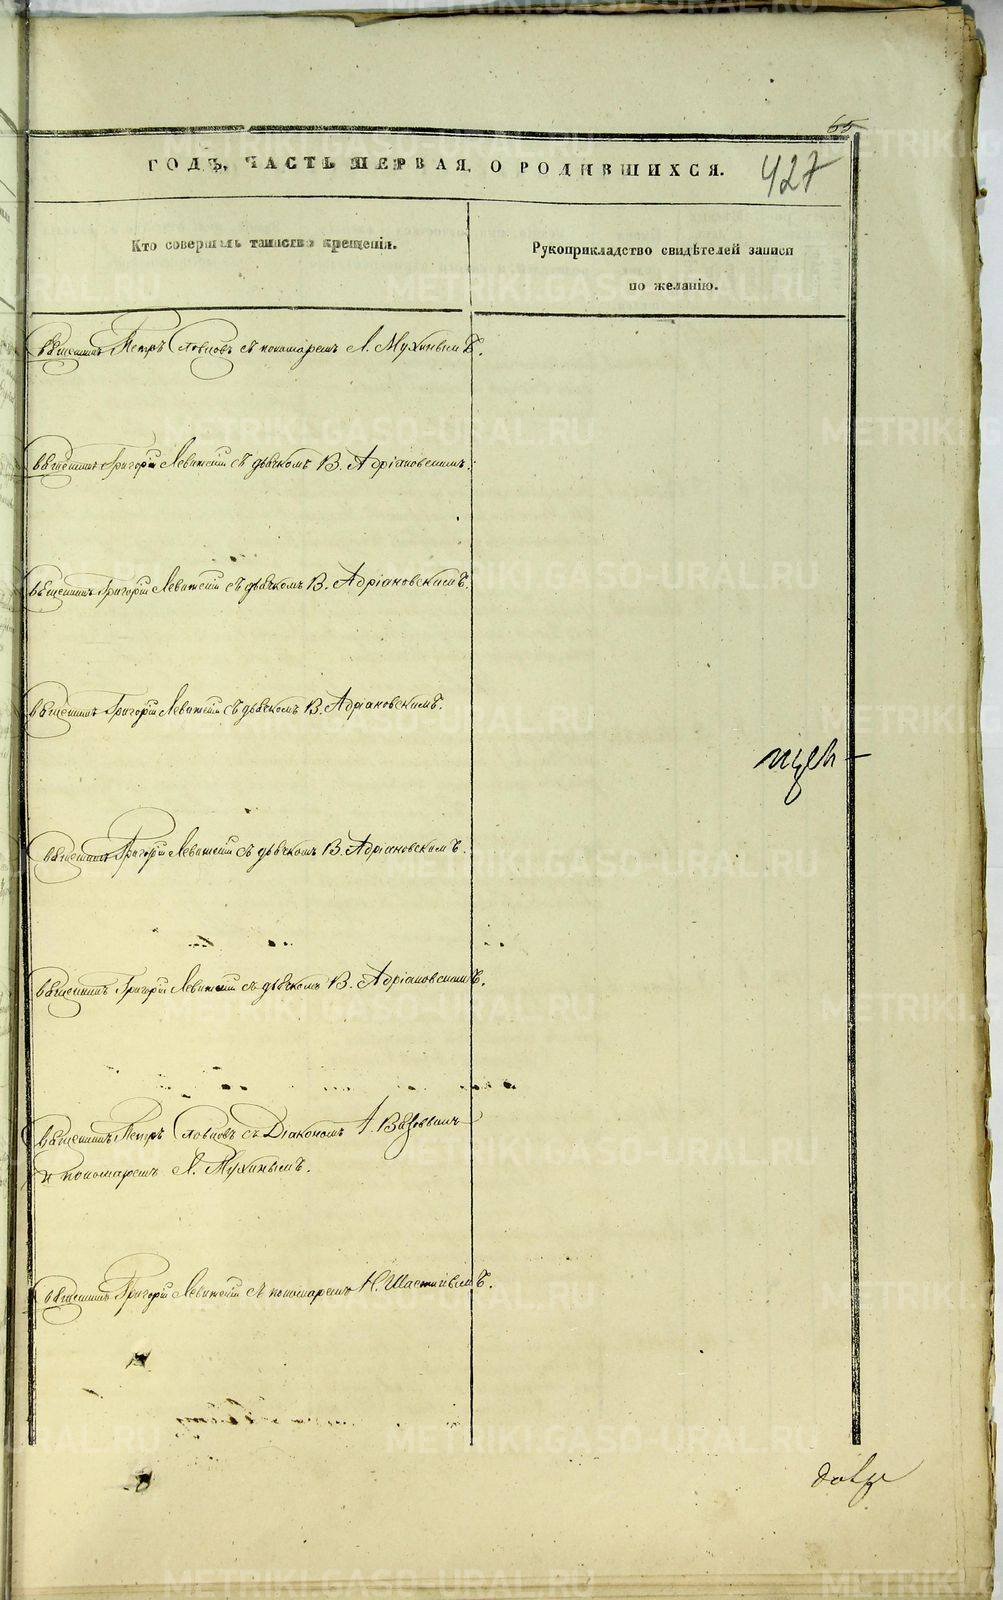 65
ГОДЪ, ЧАСТЬ ПЕРВАЯ, О РОДИВШИХСЯ.
427
Кто совершалъ таинство крещенія.
Рукоприкладство свидѣтелей записи
по желанію.
Священникъ Петръ Словцовъ съ пономаремъ Л. Мухинымъ.
Священникъ Григорій Левитскій съ дьячкомъ В. Адріановскимъ.
Священникъ Григорій Левитскій съ дьячкомъ В. Адріановскимъ.
Священникъ Григорій Левитскій съ дьячкомъ В. Адріановскимъ.
Священникъ Григорій Левитскій съ дьячкомъ В. Адріановскимъ.
Священникъ Григорій Левитскій съ дьячкомъ В. Адріановскимъ.
Священникъ Петръ Словцовъ съ Діакономъ
и пономаремъ Л. Мухинымъ.
Священникъ Григорій Левитскій съ пономаремъ Н.
METRIKI.GASO-URAL.RU